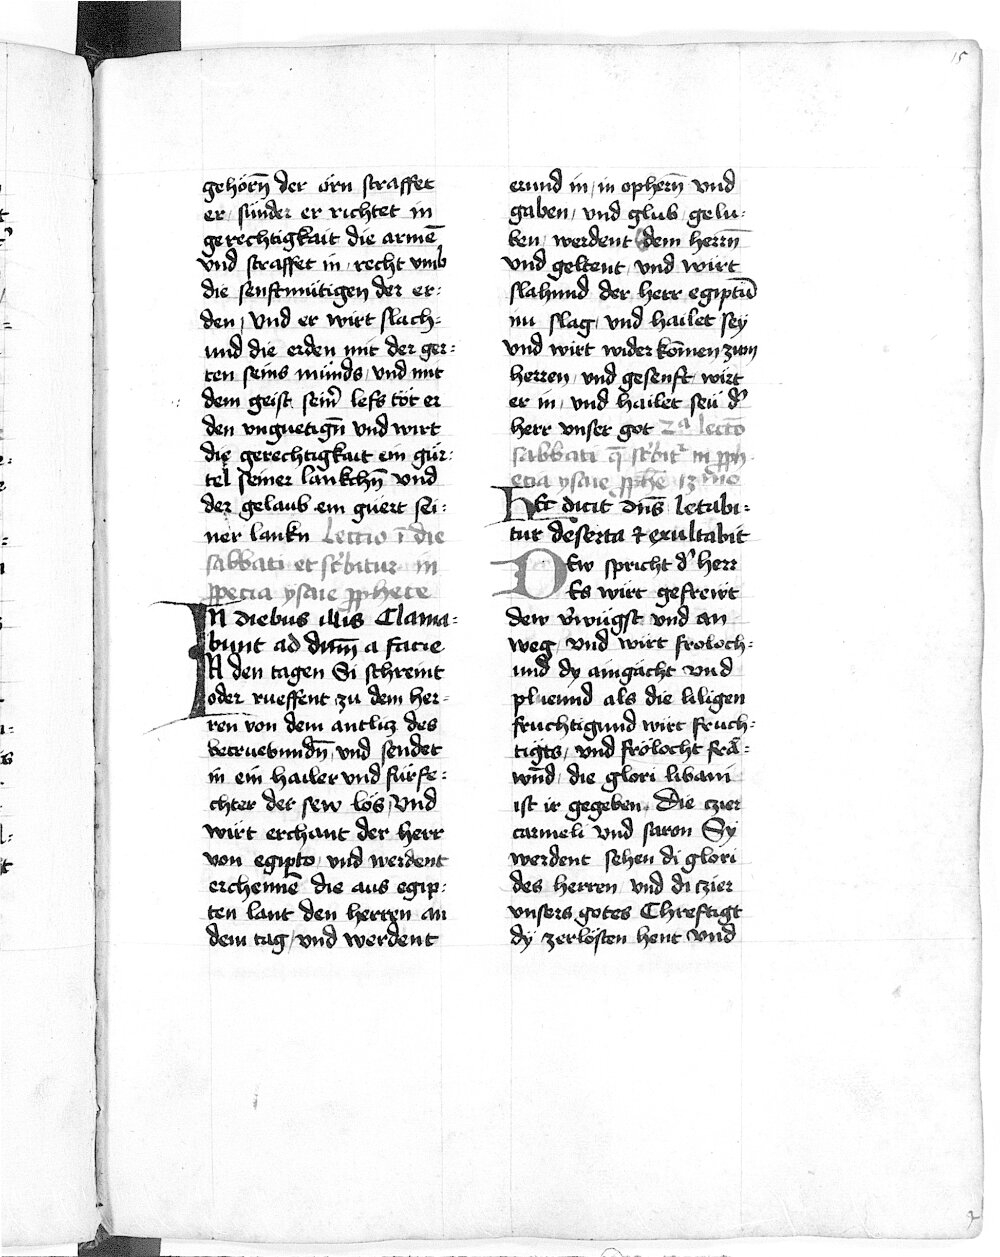 15
gehörn̄ der örn straffet
er sünder er richtet in
gerechtigkait die armē
vnd straffet in recht vmb
die senftmütigen der er:
den, vnd er wirt slach:
und die erden mit der ger:
ten seins münds, vnd mit
dem geist sein̄ lefs töt er
den vnguetign̄ vnd wirt
die gerechtigkait ein gür:
tel seiner lankchn̄ vnd
der gelaub ein guert sei:
ner lankn Lectio ī die
sabbati et scͥbitur in
ꝓpecia ysaie ꝓphete
In diebus illis Clama:
bunt ad dnm̄ a facie
IN den tagen Si schreint
oder rueffent zu dem her:
ren von dem antlicz des
betruebundn̄ vnd sendet
in ein hailer vnd fürfe:
chter der sew lös, vnd
wirt erchant der herr
von egipto, vnd werdent
erchennē die aus egip:
ten lant den herren an
dem tag, vnd werdent
erund in, in ophern̄ vnd
gaben, vnd glub gelu:
ben, werdent dem herrn̄
vnd geltent, vnd wirt
slahund der herr egiptū
im slag, vnd hailet sey
vnd wirt wider kom̄en zum
herren, vnd gesenft wirt
er in, vnd hailet seu d̓
herr vnser got 2ᵃ lectō
sabbati q̄ scͥbitᷣ in ꝓph
ecia ysaie ꝓphē
HEc dicit dn̄s letabi:
tur deserta & exultabit
DEw spricht d̓ herr
Es wirt gefrewt
dew v̓wügst vnd an
weg, vnd wirt froloch:
und dy aingächt vnd
pluennd als die liligen
fruchtigund wirt fruch:
tigts, vnd frölocht frä:
wn̄d, die glori libani
ist ir gegeben. Die czier
carmeli vnd saron Sy
werdent sehen di glori
des herren, vnd di czier
vnsers gotes Chreftigt
dÿ zerlösten hent vnd